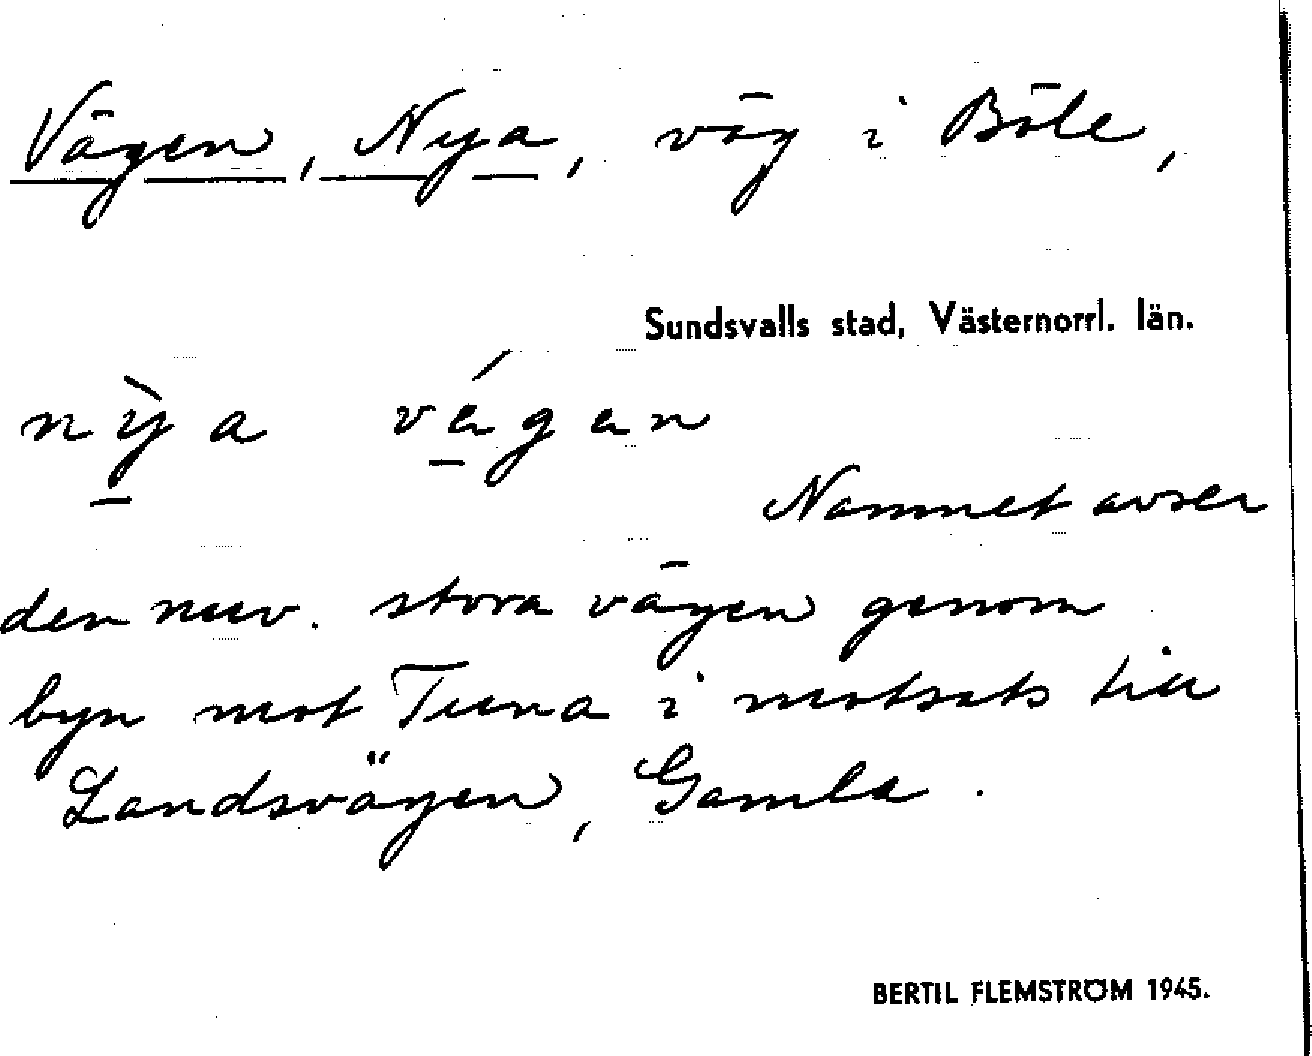 Vägen, Nya, väg i Böle,
Sundsvalls stad, Västernorrl. län.
nỳa végan
Namnet avser
den nuv. stora vägen genom
byn mot Tuna i motsats till
Landsvägen, Gamla.
BERTIL FLEMSTRÖM 1945.